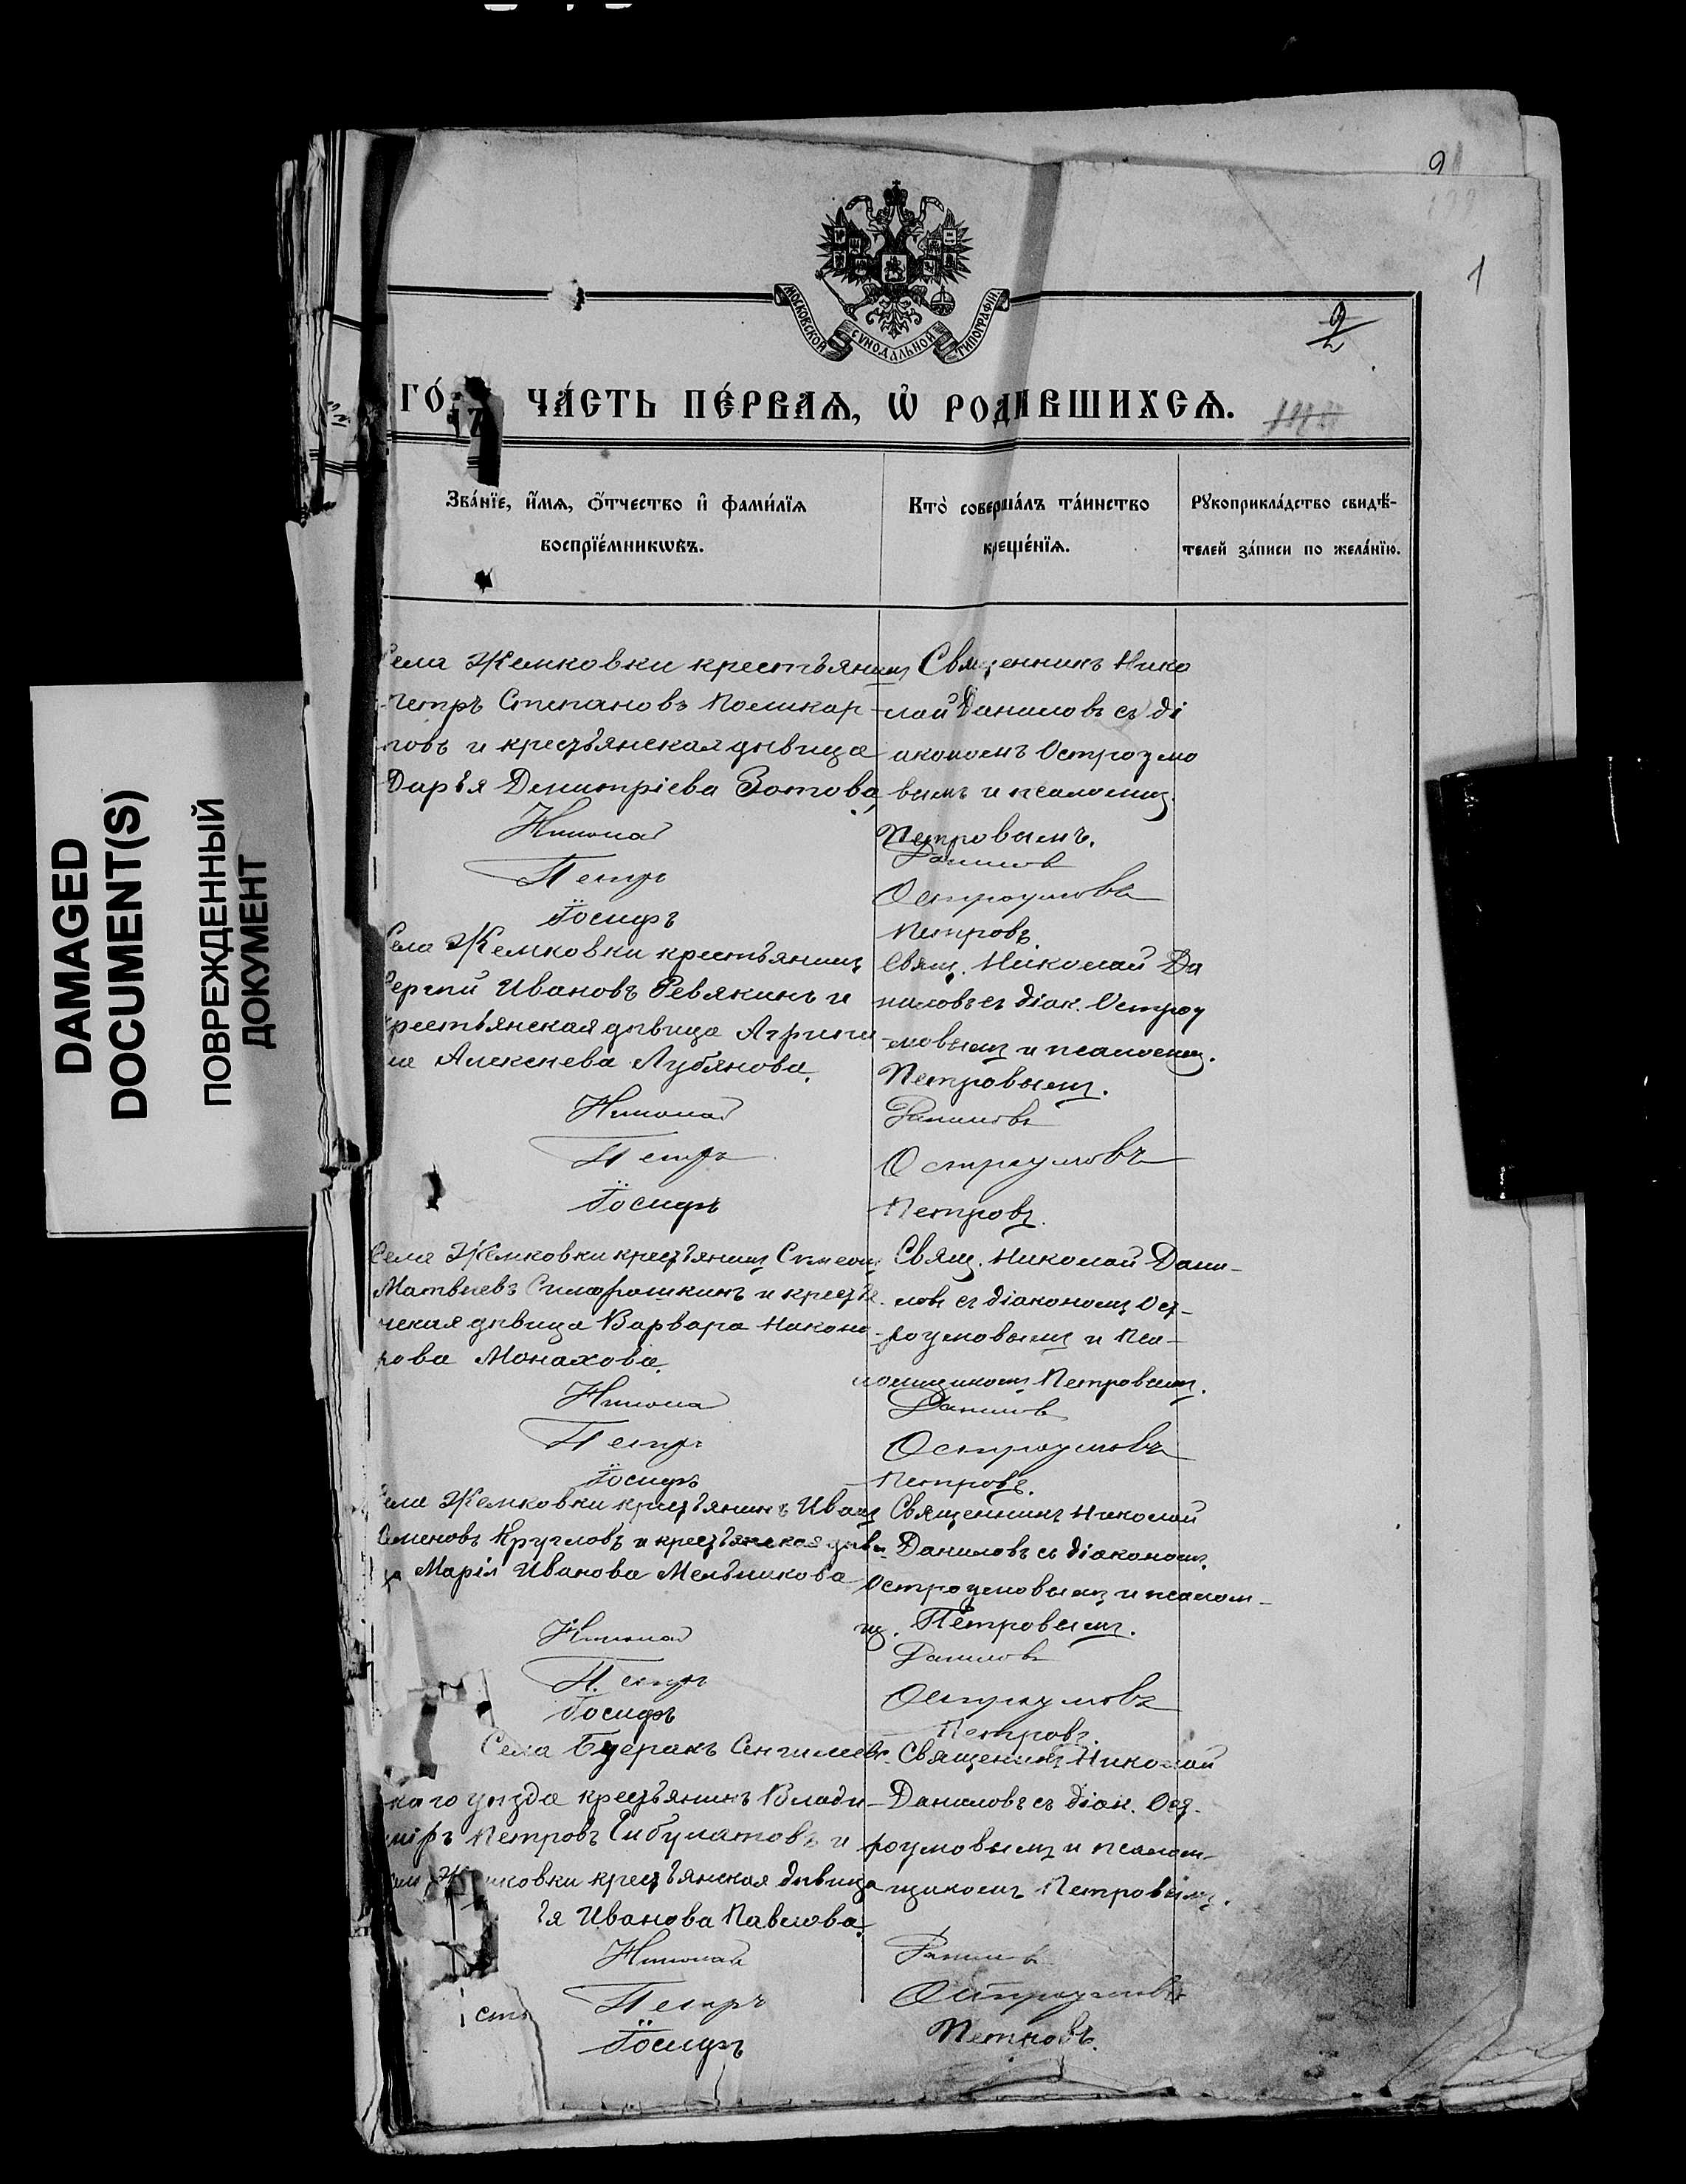 DAMAGED
DOCUMENT(S)
ПОВРЕЖДЕННЫЙ
ДОКУМЕНТ
1
МОСКОВСКОЙ СѴНОДАЛЬНОЙ ТИПОГРАФІИ
ГО́ ЧА́СТЬ ПЕ́РВАѦ, Ѡ҆ РОДИ́ВШИХСѦ.
Зва́нїе, и҆́мѧ, ѻ҆́тчество и҆ фами́лїѧ
воспрїе́мникѡвъ.
Кто̀ соверша́лъ та́инство
креще́нїѧ.
Рꙋкоприкла́дство свидѣ́-
телей за́писи по жела́нїю.
Села Жемковки крестьянинъ
Петръ Степановъ Поликар-
повъ и крестьянская дѣвица
Дарья Димитріева Зотова
Священникъ Нико
лай Даниловъ съ ді
акономъ Остроумо
вымъ и псаломщ.
Петровымъ.
Николай Данилов
Петръ Остроумовъ
Іосифъ Петровъ.
Села Жемковки крестьянинъ
Сергѣй Ивановъ Ревякинъ и
крестьянская дѣвица Агрипи
на Алексѣева Лубянова.
Свящ. Николай Да
ниловъ съ діак. Остроу
мовымъ и псаломщ.
Петровымъ.
Николай Даниловъ
Петръ Остроумовъ
Іосифъ Петровъ.
Села Жемковки крестьянинъ Симеонъ
Матвѣевъ и крестья
нская дѣвица Варвара Никано
рова Монахова.
Свящ. Николай Дани-
ловъ съ діакономъ Ост-
роумовымъ и Пса-
ломщикомъ Петровымъ.
Николай Данилов
Петръ Остроумовъ
Іосифъ Петровъ.
Села Жемковки крестьянинъ Иванъ
Семеновъ Кругловъ и крестьянская дѣви
ца Марія Иванова Мельникова
Священникъ Николай
Даниловъ съ діакономъ
Остроумовымъ и псалом-
щ. Петровымъ.
Николай Данилов
Петръ Остроумовъ
Іосифъ Петровъ.
Села Буеракъ Сенгилеев
каго уѣзда крестьянинъ Влади-
міръ Петровъ и
Жемковки крестьянская дѣвица
Иванова Павлова.
Священникъ Николай
Даниловъ съ діак. Ост-
роумовымъ и псалом-
щикомъ Петровымъ.
Николай Данилов
Петръ Остроумовъ
Іосифъ Петровъ.